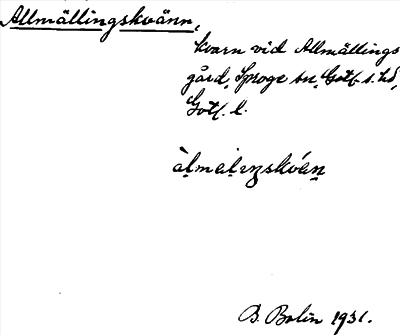 Allmällingskvänn,
kvarn vid Allmällings
gård, Sproge sn, Gotl. s. hd,
Gotl. l.
àl̩mal̩ıŋskván̩
B. Bolin 1931.